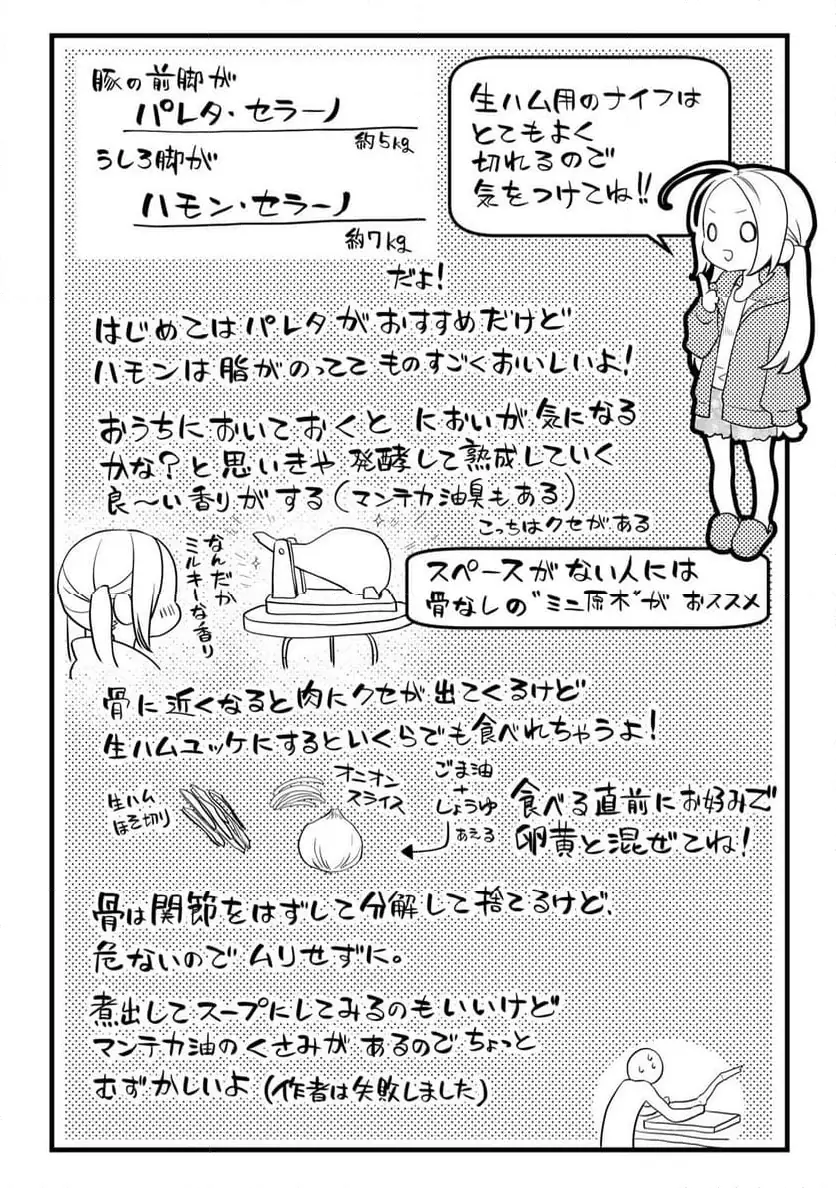 豚の前脚が
パレタ・セラーノ
約5kg
うしろ脚が
ハモン・セラーノ
約7kg
だよ!
生ハム用のナイフは
とてもよく
切れるので
気をつけてね!!
はじめてはパレタがおすすめだけど
ハモンは脂がのってて ものすごくおいしいよ!
おうちにおいておくと においが気になる
かな?と思いきや 発酵して熟成していく
良〜い香りがする(マンテカ油臭もある)
こっちはクセがある
なんだか
ミルキーな香り
スペースがない人には
骨なしの"ミニ原木"が おススメ
骨に近くなると肉にクセが出てくるけど
生ハムユッケにするといくらでも食べれちゃうよ!
生ハム
ほそ切り
オニオン
スライス
ごま油
+
しょうゆ
あえる
食べる直前にお好みで
卵黄と混ぜてね!
骨は関節をはずして分解して捨てるけど、
危ないのでムリせずに。
煮出してスープにしてみるのもいいけど
マンテカ油のくさみがあるのでちょっと
むずかしいよ(作者は失敗しました)